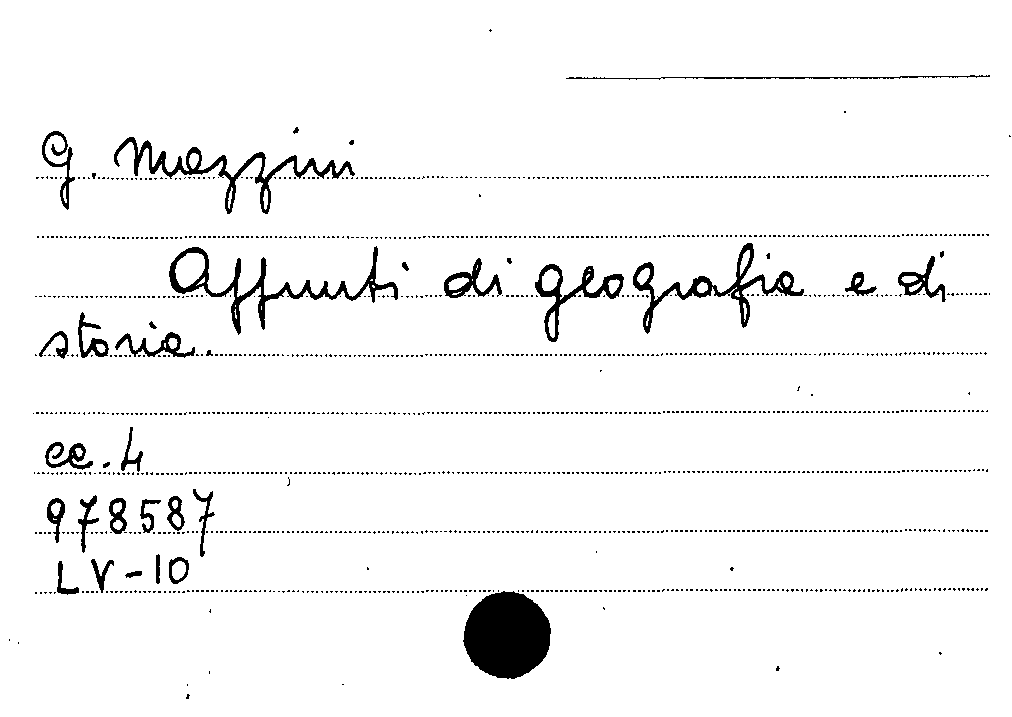 G. Mazzini
Appunti di geografia e di
storia.
cc. 4
978587
LV-10